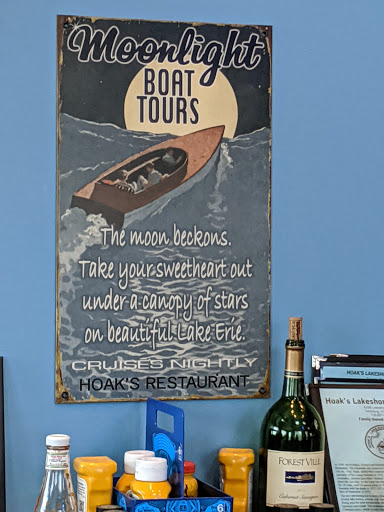 Moonlight
BOAT
TOURS
The moon beckons.
Take your sweetheart out
under a canopy of stars
on beautiful Lake Erie.
CRUISES NIGHTLY
HOAK'S RESTAURANT
HOAK'S LAKESH
Hoak's Lakeshor
FOREST VILLE
Cabernet Sauvignon
6